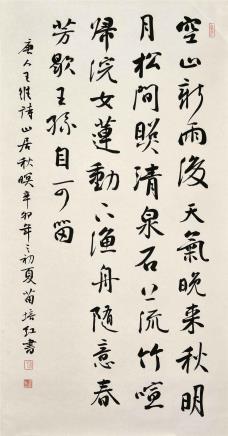 空山新雨後天氣晚來秋明
月松間照清泉石上流竹喧
歸浣女蓮動下漁舟隨意春
芳歇王孫自可留
唐人王維詩山居秋暝辛卯年之初夏苗培紅書